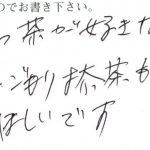 のでお書き下さい。
っ茶が好きな
ごり抹茶も
ほしいです